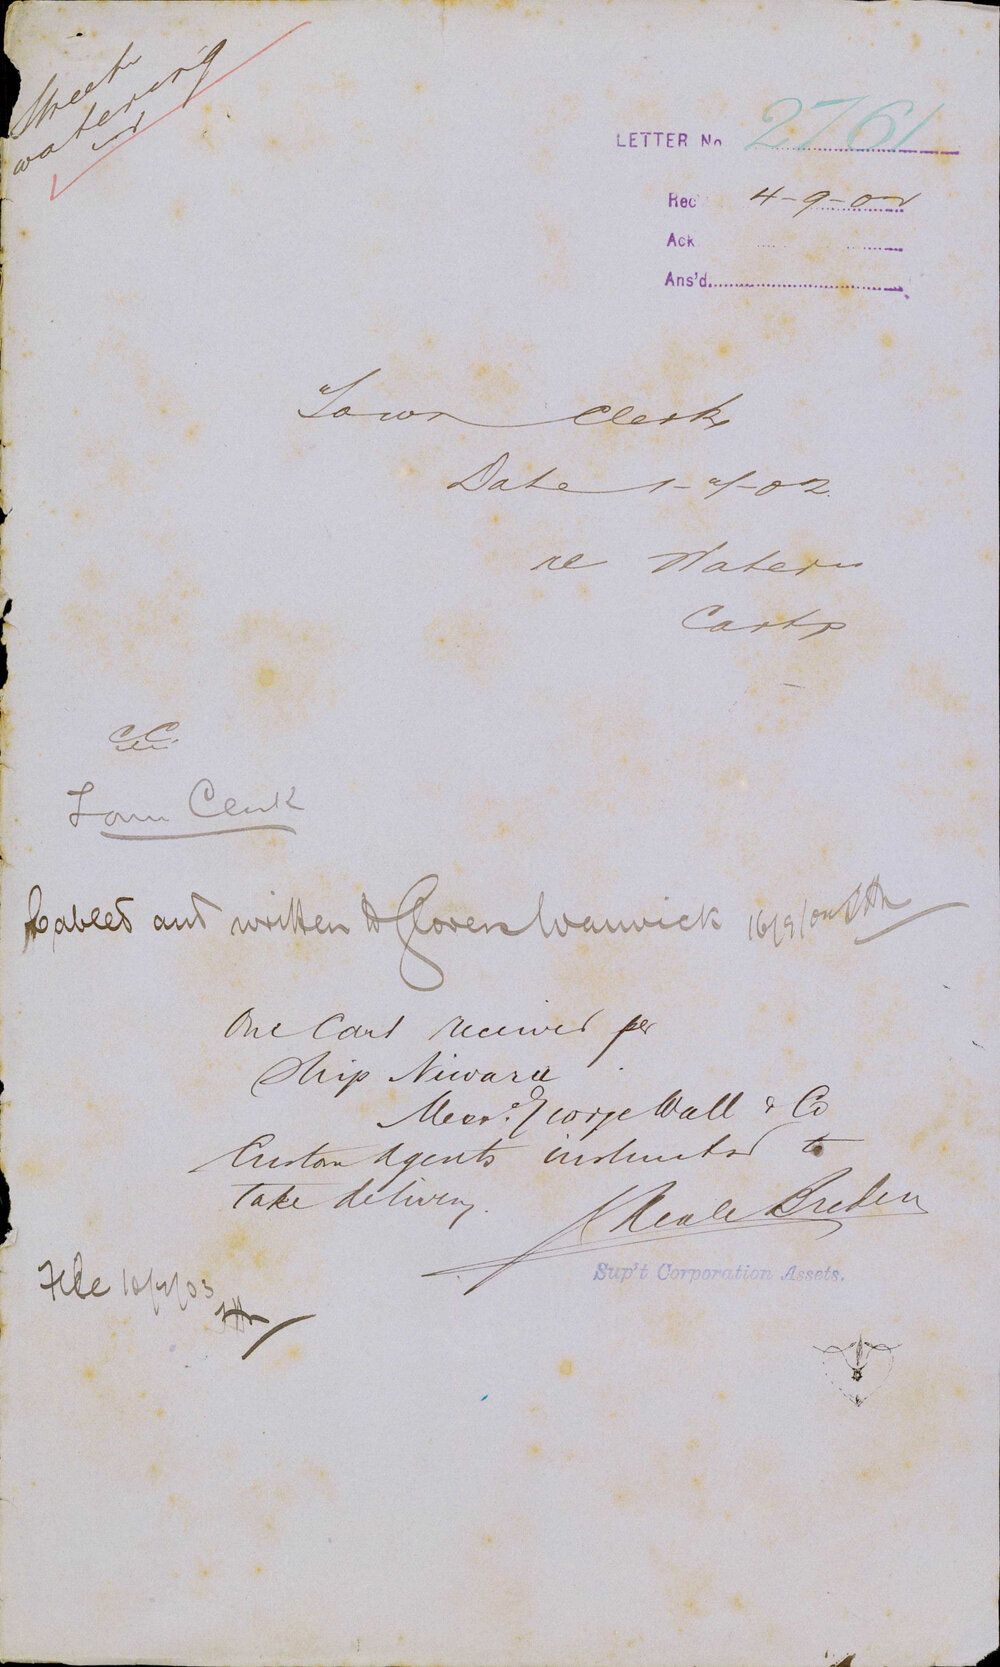 Street
watering
LETTER No 2761
Rec 4-9-02
Ack
Ans'd
Town Clerk
Date 1-9-02
re Water
Carts
CC
Town Clerk
Cabled and written to Glovers Warwick 16/9/02
One Cart received per
Ship Niwaru
Messrs. George Wall & Co
Custom Agents instructed to
take delivery.
Neale Breden
Sup't Corporation Assets.
File 10/2/03